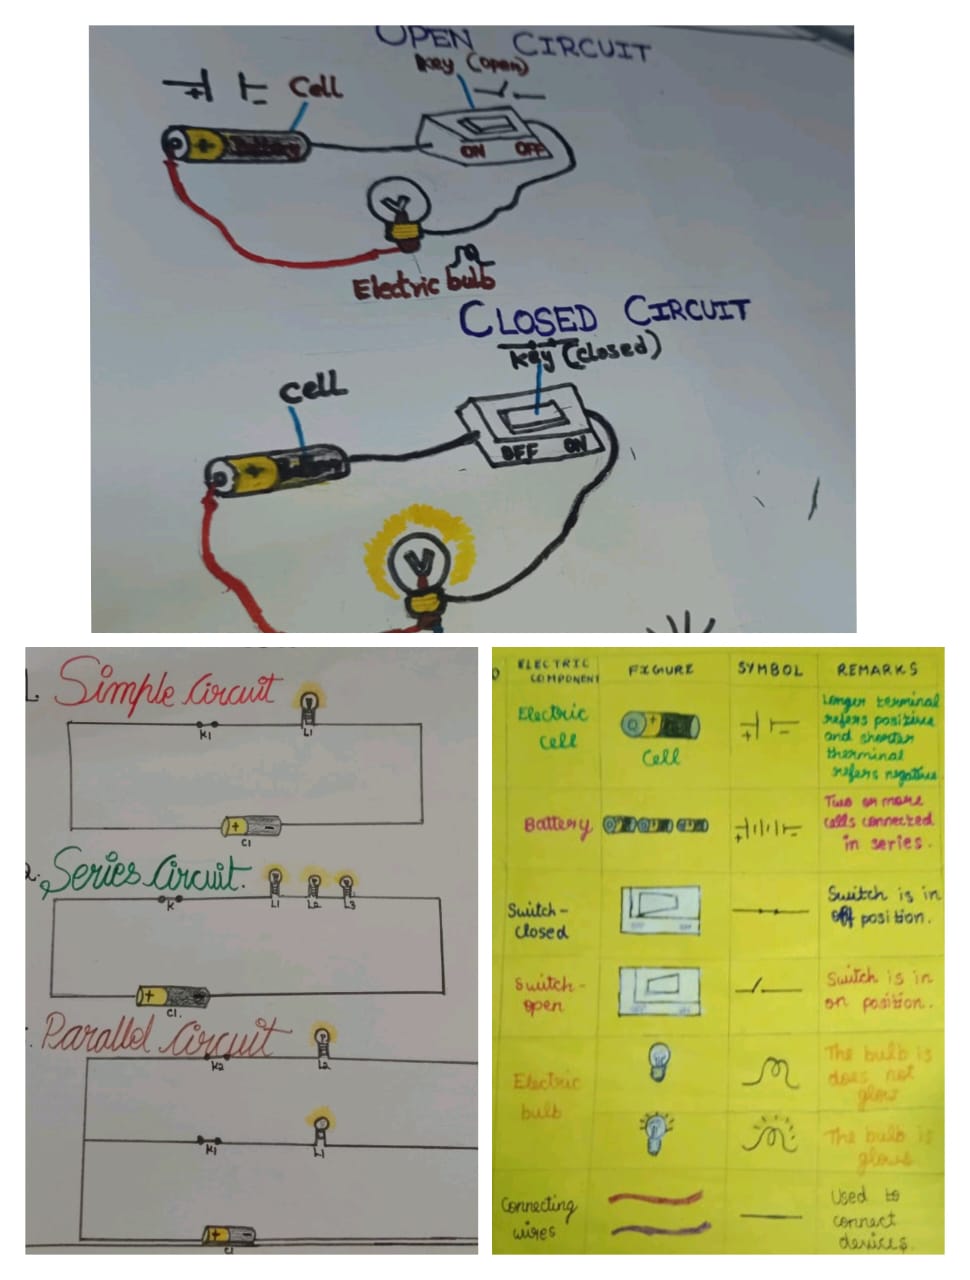 OPEN CIRCUIT
Key (open)
Cell
+ -
+ Battery
ON OFF
Electric bulb
CLOSED CIRCUIT
Key (closed)
Cell
+
OFF ON
1. Simple Circuit
K1 L1
+ -
C1
2. Series Circuit.
K L1 L2 L3
+ -
C1.
Parallel Circuit
K2 L2
K1 L1
+ -
C1
ELECTRIC COMPONENT FIGURE SYMBOL REMARKS
Electric
Cell
+
Cell
+ -
Longer terminal
refers positive
and shorter
therminal
refers negative.
Battery
+ -
Two or more
cells connected
in series.
Switch-
closed
Switch is in
off position.
Switch-
open
Switch is in
on position.
Electric
bulb
The bulb is
does not
glow
The bulb is
glows
Connecting
wires
Used to
connect
devices.